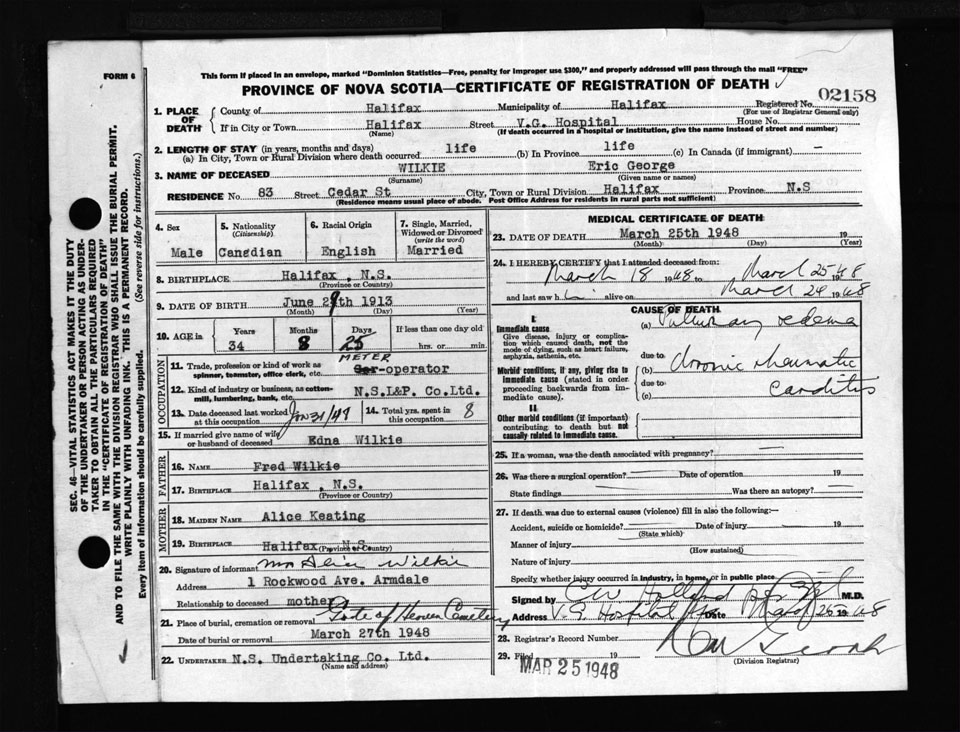 FORM 6
This form if placed in an envelope, marked "Dominion Statistics—Free, penalty for improper use $300," and properly addressed will pass through the mail "FREE"
PROVINCE OF NOVA SCOTIA—CERTIFICATE OF REGISTRATION OF DEATH
02158
1. PLACE OF DEATH County of Halifax Municipality of Halifax Registered No.
(For use of Registrar General only)
If in City or Town Halifax Street V.G. Hospital House No.
(Name) (If death occurred in a hospital or institution, give the name instead of street and number)
2. LENGTH OF STAY (in years, months and days)
(a) In City, Town or Rural Division where death occurred life (b) In Province life (c) In Canada (if immigrant) —
3. NAME OF DECEASED WILKIE Eric George
(Surname) (Given name or names)
RESIDENCE No. 83 Street Cedar St City, Town or Rural Division Halifax Province N.S
(Residence means usual place of abode. Post Office Address for residents in rural parts not sufficient)
4. Sex Male
5. Nationality (Citizenship) Canadian
6. Racial Origin English
7. Single, Married, Widowed or Divorced (write the word) Married
8. BIRTHPLACE Halifax, N.S.
(Province or Country)
9. DATE OF BIRTH June 29th 1913
(Month) (Day) (Year)
10. AGE IN Years 34 Months 8 Days 25 If less than one day old hrs. or min.
OCCUPATION
11. Trade, profession or kind of work as spinner, teamster, office clerk, etc. METER operator
12. Kind of industry or business, as cotton-mill, lumbering, bank, etc. N.S.L&P. Co.Ltd.
13. Date deceased last worked at this occupation Jan 31/47
14. Total yrs. spent in this occupation 8
15. If married give name of wife or husband of deceased Edna Wilkie
FATHER
16. NAME Fred Wilkie
17. BIRTHPLACE Halifax, N.S.
(Province or Country)
MOTHER
18. MAIDEN NAME Alice Keating
19. BIRTHPLACE Halifax, N.S.
(Province or Country)
20. Signature of informant Mrs Alice Wilkie
Address 1 Rockwood Ave. Armdale
Relationship to deceased mother
21. Place of burial, cremation or removal Gate of Heaven Cemetery
Date of burial or removal March 27th 1948
22. UNDERTAKER N.S. Undertaking Co. Ltd.
(Name and address)
MEDICAL CERTIFICATE OF DEATH
23. DATE OF DEATH March 25th 1948 19
(Month) (Day) (Year)
24. I HEREBY CERTIFY that I attended deceased from:
March 18 1948 to March 25 1948
and last saw h alive on March 24 1948
CAUSE OF DEATH
I
Immediate cause
Give disease, injury or complication which caused death, not the mode of dying, such as heart failure, asphyxia, asthenia, etc.
(a) Pulmonary edema
due to
Morbid conditions, if any, giving rise to immediate cause (stated in order proceeding backwards from immediate cause).
(b) chronic rheumatic
due to
(c) carditis
II
Other morbid conditions (if important) contributing to death but not causally related to immediate cause.
25. If a woman, was the death associated with pregnancy?
26. Was there a surgical operation? Date of operation 19
State findings Was there an autopsy?
27. If death was due to external causes (violence) fill in also the following:—
Accident, suicide or homicide? Date of injury 19
(State which)
Manner of injury
(How sustained)
Nature of injury
Specify whether injury occurred in industry, in home, or in public place
Signed by M.D.
Address V.G. Hospital Date Mar 25 1948
28. Registrar's Record Number
29. Filed 19
MAR 25 1948
(Division Registrar)
SEC. 46—VITAL STATISTICS ACT MAKES IT THE DUTY
OF THE UNDERTAKER OR PERSON ACTING AS UNDERTAKER TO OBTAIN ALL THE PARTICULARS REQUIRED
IN THE "CERTIFICATE OF REGISTRATION OF DEATH"
AND TO FILE THE SAME WITH THE DIVISION REGISTRAR WHO SHALL ISSUE THE BURIAL PERMIT.
WRITE PLAINLY WITH UNFADING INK. THIS IS A PERMANENT RECORD.
Every item of information should be carefully supplied. (See reverse side for instructions.)